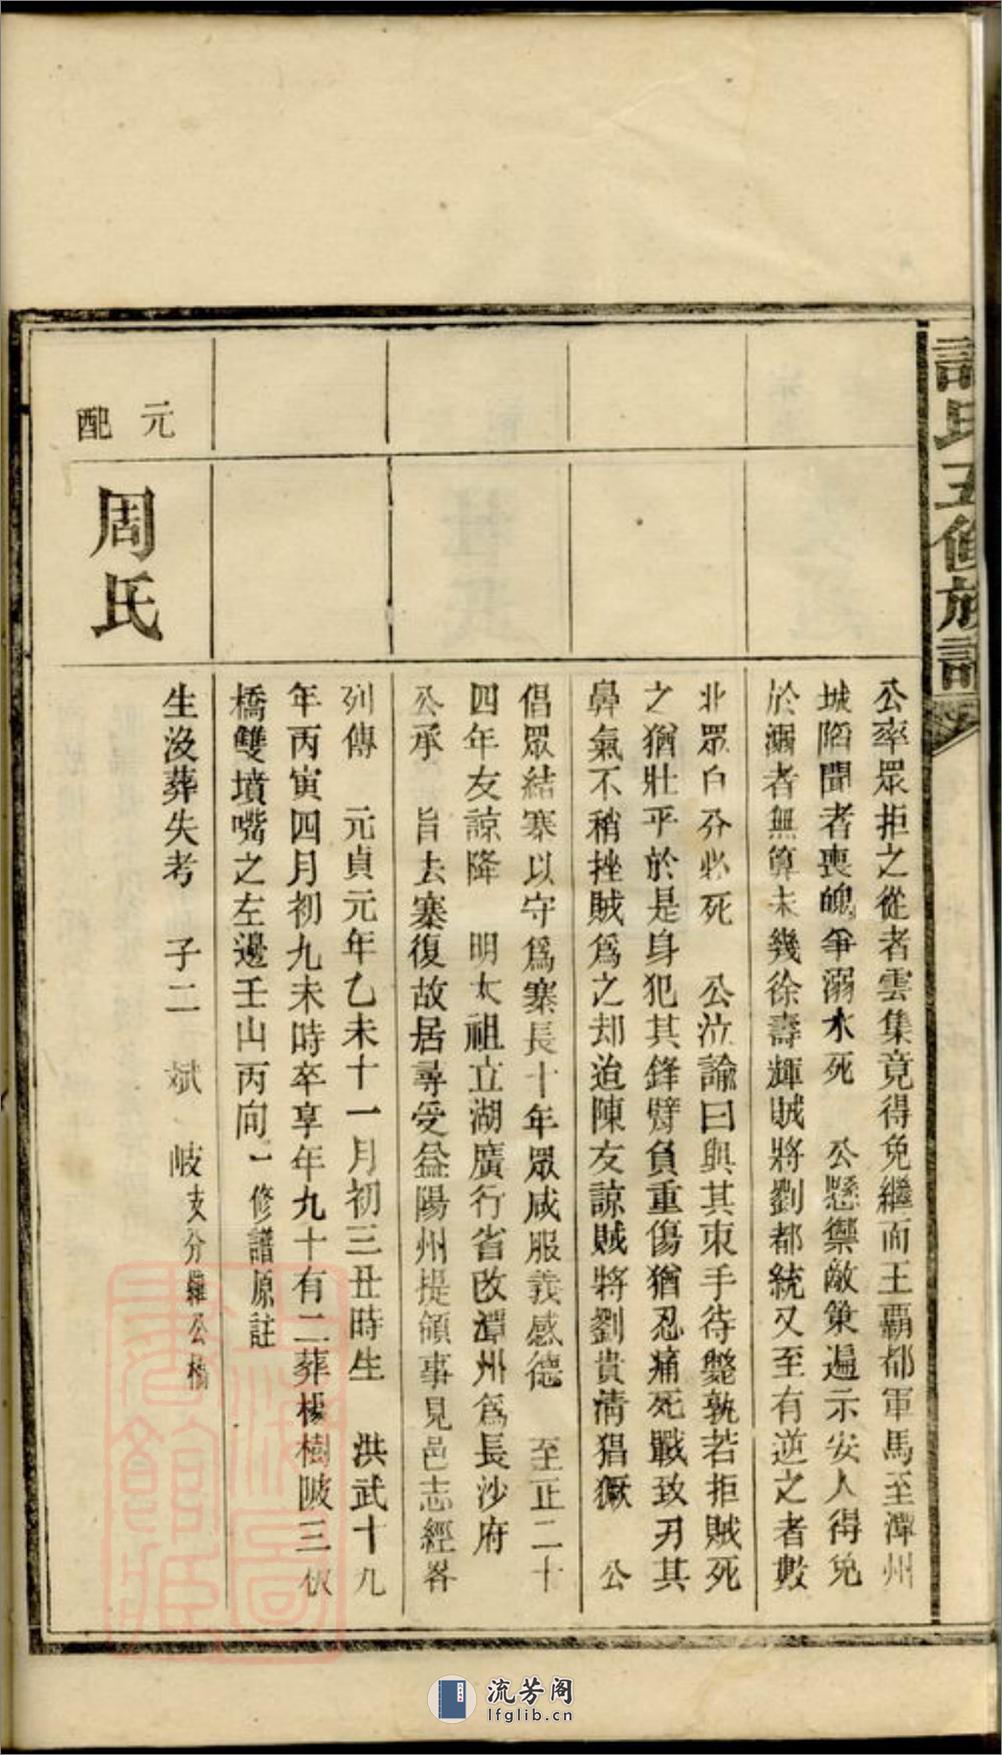 氏五修族譜
公率眾拒之從者雲集竟得免繼而王覇都軍馬至潭州
城陷聞者喪魄爭溺水死　公懸禦敵策遍示安人得免
於溺者無算未幾徐壽輝賊將劉都統又至有逆之者數
北眾自分必死　公泣諭曰與其束手待斃孰若拒賊死
之猶壯乎於是身犯其鋒臂負重傷猶忍痛死戰致刃其
鼻氣不稍挫賊爲之却迨陳友諒賊將劉貴清猖獗　公
倡眾結寨以守爲寨長十年眾咸服義感德　至正二十
四年友諒降　明太祖立湖廣行省改潭州爲長沙府
公承　旨去寨復故居尋受益陽州提領事見邑志經畧
列傳　元貞元年乙未十一月初三丑時生　洪武十九
年丙寅四月初九未時卒享年九十有二葬楊樹陂三
橋雙墳嘴之左邊壬山丙向一修譜原註
元配
周氏
生沒葬失考　子二　斌　岐支分公橋
流芳阁
lfglib.cn